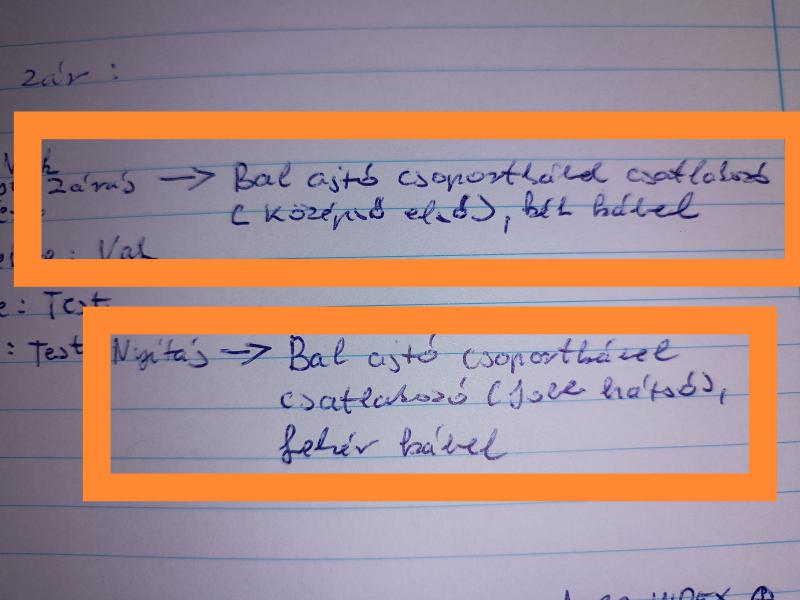 zár :
Zárás → Bal ajtó csoportkábel csatlakozó
(középső első), kék kábel
: Vak
e: Test
: Test Nyitás → Bal ajtó csoportkábel
csatlakozó (jobb hátsó),
fehér kábel